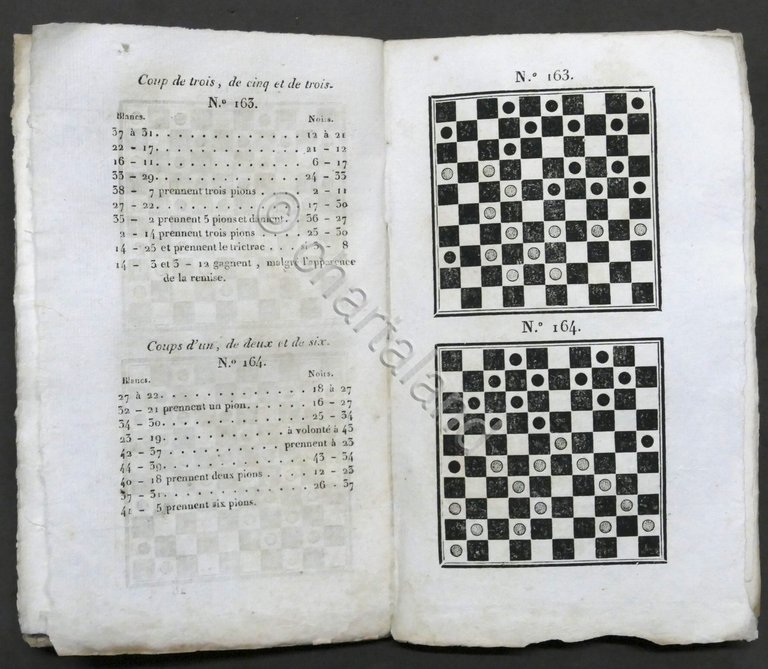 Coup de trois, de cinq et de trois.
N.º 163.
Blancs. Noirs.
37 à 31. 12 à 21
22 - 17. 21 - 12
16 - 11. 6 - 17
33 - 29. 24 - 33
38 - 7 prennent trois pions . 2 - 11
27 - 22. 17 - 30
35 - 2 prennent 5 pions et dament. 36 - 27
2 - 14 prennent trois pions . 25 - 30
14 - 25 et prennent le trictrac . 8
14 - 3 et 3 - 12 gagnent, malgré l'apparence
de la remise.
Coups d'un, de deux et de six.
N.º 164.
Blancs. Noirs.
27 à 22. 18 à 27
32 - 21 prennent un pion. 16 - 27
34 - 30. 25 - 34
23 - 19. à volonté à 43
42 - 37 prennent à 23
44 - 39. 43 - 34
40 - 18 prennent deux pions . 12 - 23
37 - 31. 26 - 37
41 - 5 prennent six pions.
N.º 163.
N.º 164.
© smartaland